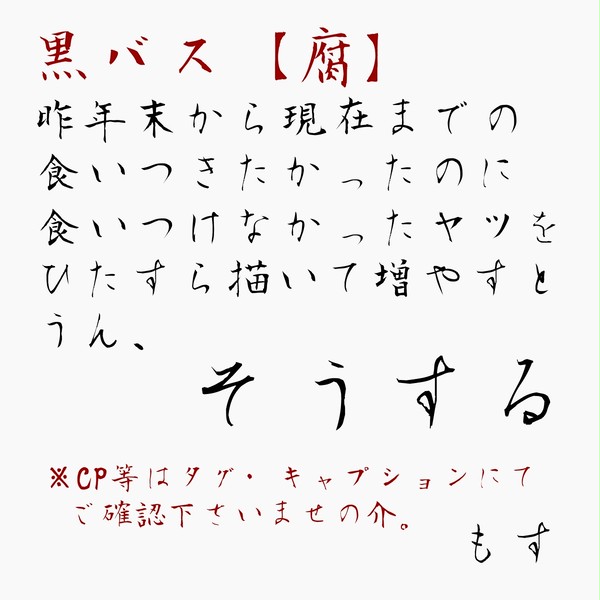 黒バス【腐】
昨年末から現在までの
食いつきたかったのに
食いつけなかったヤツを
ひたすら描いて増やすと
うん、
そうする
※CP等はタグ・キャプションにて
ご確認下さいませの介。
もす